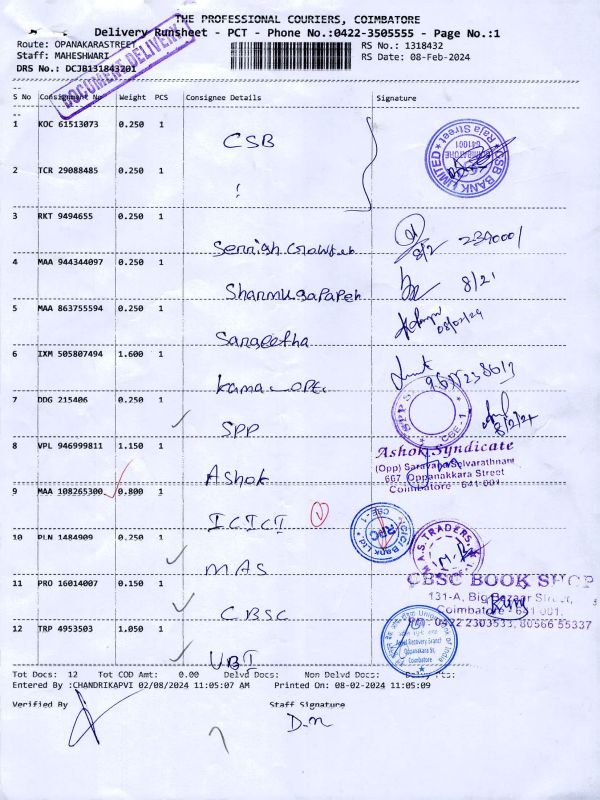 THE PROFESSIONAL COURIERS, COIMBATORE
Delivery Runsheet - PCT - Phone No.:0422-3505555 - Page No.:1
Route: OPANAKARASTREET
RS No.: 1318432
Staff: MAHESHWARI
RS Date: 08-Feb-2024
DRS No.: DCJB131843201
DOCUMENT DELIVERY
S No Consignment No Weight PCS Consignee Details Signature
1 KOC 61513073 0.250 1
CSB
CSB BANK LIMITED Raja Street COIMBATORE 641001
2 TCR 29088485 0.250 1
3 RKT 9494655 0.250 1
8/2
4 MAA 944344097 0.250 1
8/21
5 MAA 863755594 0.250 1
Sangeetha
08/02/24
6 IXM 505807494 1.600 1
7 DDG 215406 0.250 1
SPP
CBE-1
8/2/24
8 VPL 946999811 1.150 1
Ashok
Ashok Syndicate
(Opp) Saravana Selvarathnam
667 Oppanakkara Street
Coimbatore - 641 001
9 MAA 108265300 0.800 1
ICICI
ICICI Bank Ltd RPC CBE - 1
10 PLN 1484909 0.250 1
MAS
M.A.S. TRADERS
11 PRO 16014007 0.150 1
CBSC
CBSC BOOK SHOP
131-A, Big Bazaar Street,
Coimbatore - 641 001.
0422 2303533, 80566 55337
12 TRP 4953503 1.050 1
UBI
Union Bank of India
Asset Recovery Branch
Oppanakara St,
Coimbatore
Tot Docs: 12 Tot COD Amt: 0.00 Delvd Docs: Non Delvd Docs:
Entered By :CHANDRIKAPVI 02/08/2024 11:05:07 AM Printed On: 08-02-2024 11:05:09
Verified By Staff Signature